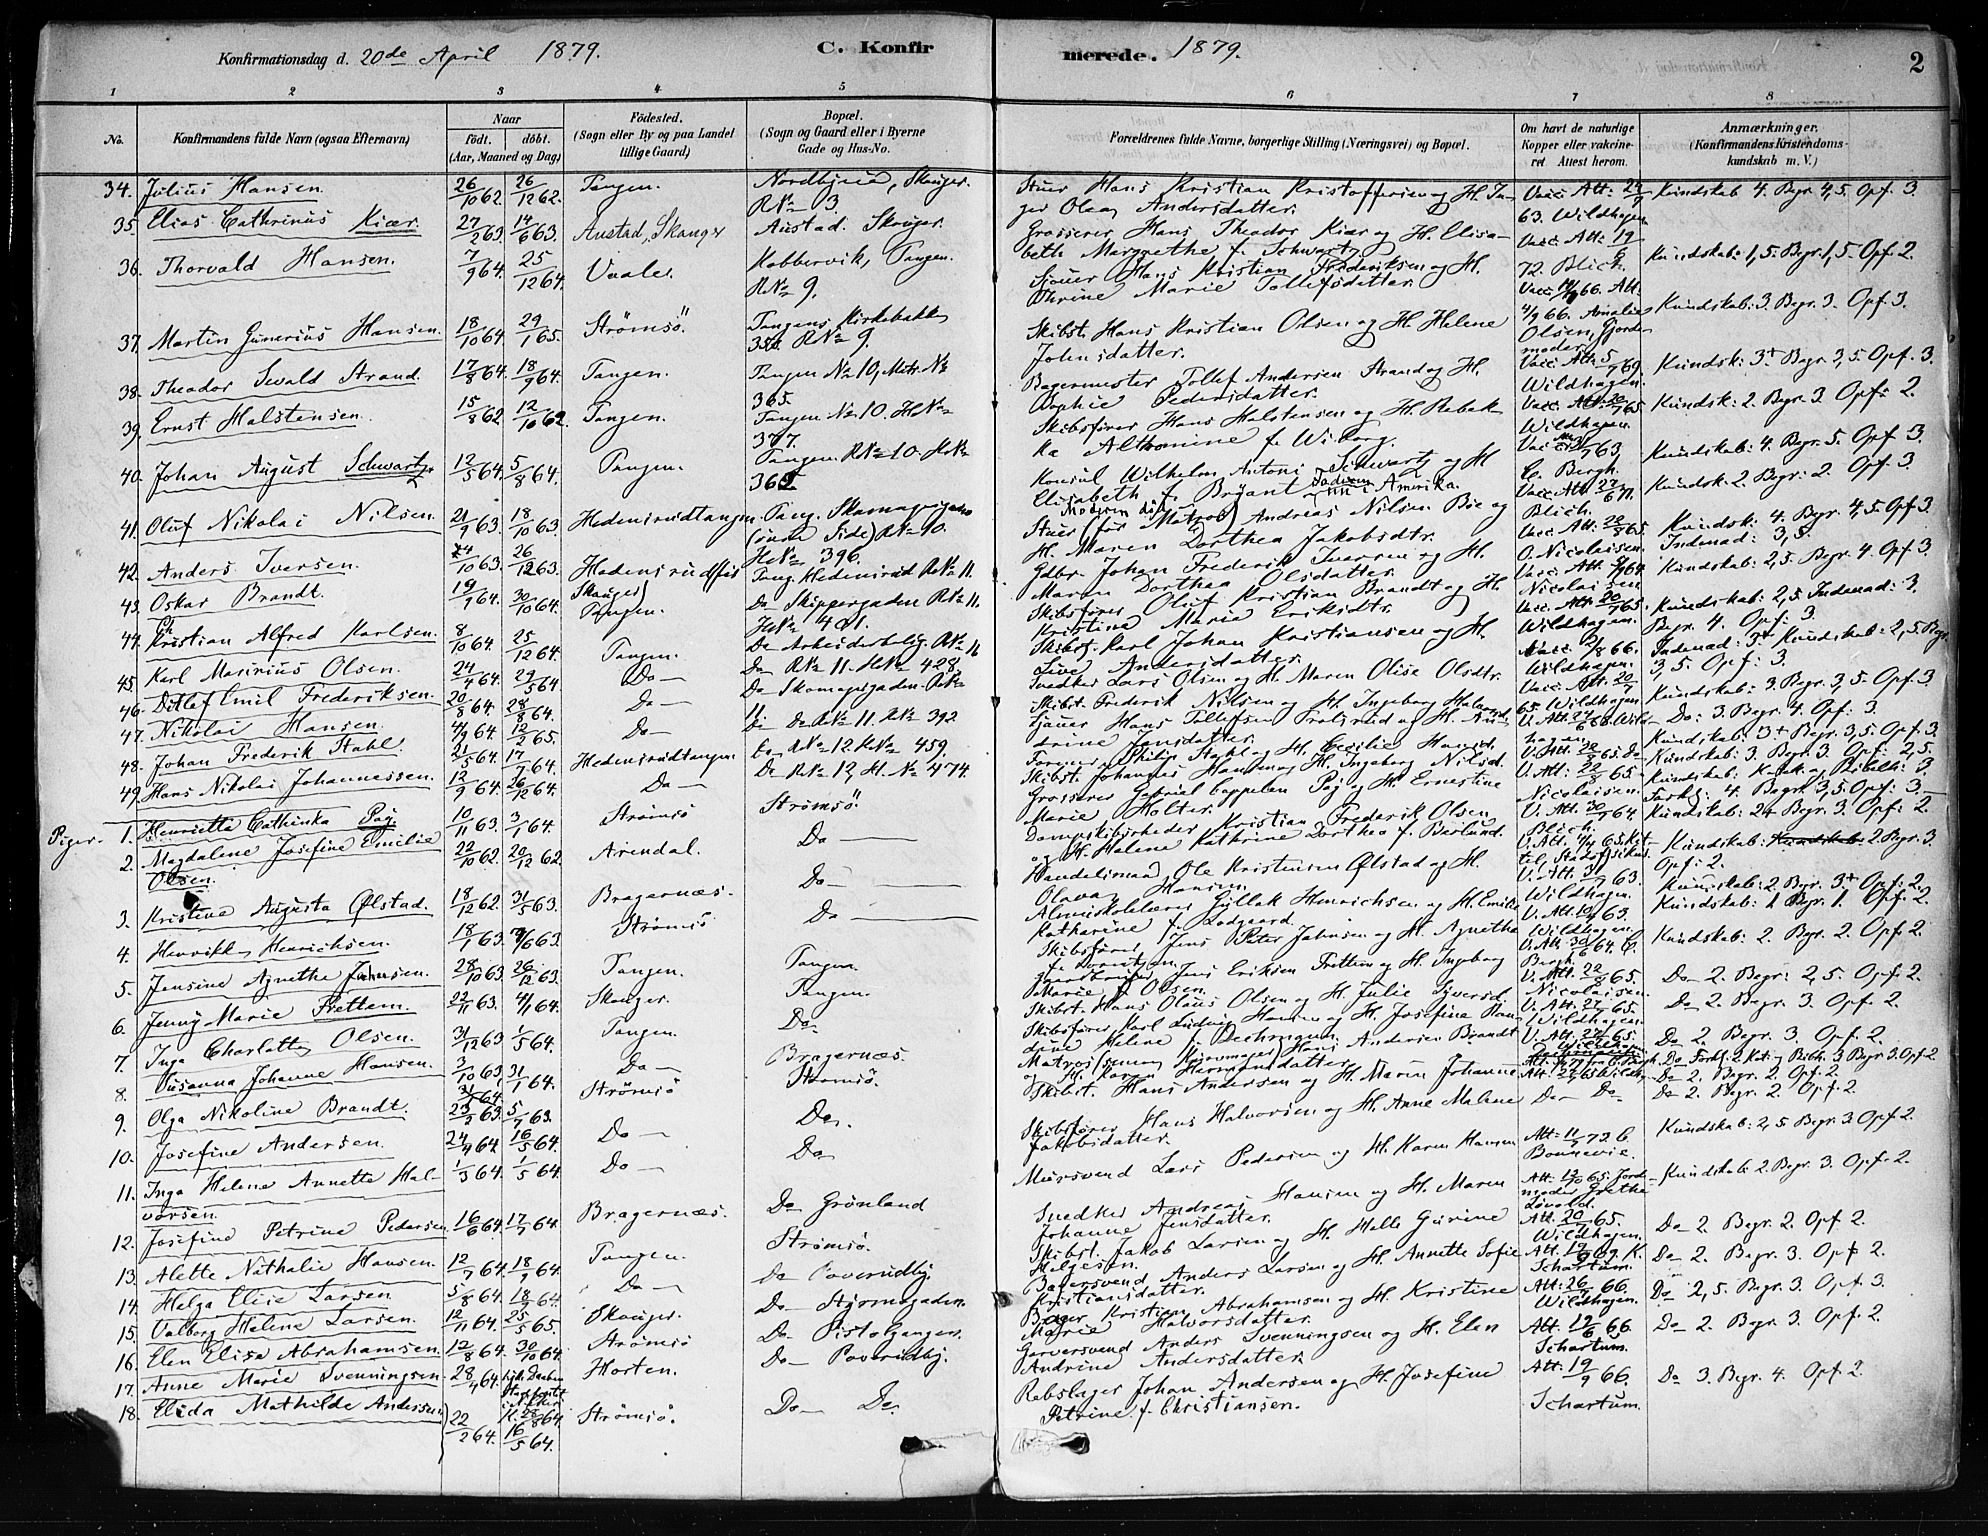 Konfirmationsdag d. 20de April 1879. C. Konfirmerede. 1879. 2
1 2 3 4 5 6 7 8
No. Konfirmandens fulde Navn (ogsaa Efternavn) Naar födt. döbt. (Aar, Maaned og Dag) Födested. (Sogn eller By og paa Landet tillige Gaard) Bopæl. (Sogn og Gaard eller i Byerne Gade og Hus-No. Forældrenes fulde Navne, borgerlige Stilling (Næringsvei) og Bopæl. Om havt de naturlige Kopper eller vakcineret Attest herom. Anmærkninger. (Konfirmandens Kristendomskundskab m. V.)
34. Julius Hansen. 26/10 62. 26/12 62. Tangen. Skauger. R No 3. Stuer Hans Kristian Kristoffersen og H. Inger Olea Andersdatter. 63. Wildhagen Kundskab 4. Begr 4,5 Opf. 3.
35. Elias Cathrinus Kiær. 27/2 63. 14/6 63. Austad, Skauger Austad. Skauger. Grosserer Hans Theodor Kiær og H. Elisabeth Margrethe f. Schwartz Vacc. Att. 19/9 72. Blich. Kundskab: 1,5. Begr. 1,5. Opf. 2.
36. Thorvald Hansen. 7/9 64. 25/12 64. Vaale. Kobbervik, Tangen. R No 9. Sjouer Hans Kristian Frederiksen og H. Thrine Marie Tollefsdatter. Amalie Olsen, Gjordemoder Kundskab: 3 Begr. 3. Opf. 3.
37. Martin Gunerius Hansen. 18/10 64. 29/1 65. Strømsö. Tangens Kirkebakke R No 9. Skibst. Hans Kristian Olsen og H. Helene Johnsdatter. Vacc Att: 5/7 69. Wildhagen. Kundsk: 3+ Begr. 3,5. Opf. 3.
38. Theodor Sevald Strand. 17/8 64. 18/9 64. Tangen. Tangen No 10, Matr. No 365. Bagermester Tollef Andersen Strand og H. Sophie Pedersdatter. Vacc. Att. 20/7 65. Wildhagen. Kundsk: 2. Begr. 3 Opf. 2.
39. Ernst Halstensen. 15/8 62. 12/10 62. Tangen. Tangen No 10. H No 377. Skibsfører Hans Halstensen og H. Rebekka Althomine f. Wiborg. C. Bergh. Kundskab: 4. Begr. 5. Opf. 3.
40. Johan August Schwartz 12/5 64. 5/8 64. Tangen. Tangen R No 10. Konsul Wilhelm Antoni Schwartz og H. Elisabeth f. Bryant Vacc. Att. 27/6 71. Blich. Kundsk: 2. Begr. 2. Opf. 3.
41. Oluf Nikolai Nilsen. 21/9 63. 18/10 63. Hedensrudtangen. Tang. R No 10. H No 396. Stuer (før Matros) Andreas Nilsen Bøe og H. Maren Dorthea Jakobsdtr. Vacc. Att. 22/8 65. O. Nicolaisen. Kundsk: 4. Begr. 4,5 Opf 3. Indenad: 3,5.
42. Anders Iversen. 24/10 63. 26/12 63. Tang. Hedensrud R No 11. Gdbr. Johan Frederik Iversen og H. Maren Dorthea Olsdatter. Nicolaisen Kundskab: 2,5. Begr. 4. Opf. 3.
43. Oskar Brandt. 19/9 64. 30/10 64. Tangen. Do Skippergaden R No 11. H No 401. Skibsfører Oluf Kristian Brandt og H. Kristine Maria Eriksdtr. Vacc. Att. 20/7 65. Wildhagen. Kundskab: 2,5 Indenad: 3. Begr. 4. Opf. 3
44. Kristian Alfred Karlsen. 8/10 64. 25/12 64. Tangen. Do Arbeiderbolig. R No 11 Skibst. Karl Johan Kristiansen og H. Live Andersdatter. Wildhagen. Indenad: 3+ Kundskab: 2,5 Begr. 3,5. Opf: 3.
45. Karl Marinius Olsen. 24/4 64. 29/5 64. Do Do R No 11. H No 428. Snedker Lars Olsen og H. Maren Olise Olsdtr. Vacc. Att. 20/7 65. Wildhagen. Kundskab: 3. Begr. 3,5. Opf. 3
46. Ditlef Emil Frederiksen. 20/8 64. 28/8 64. Do Do Skomagergaden R No 11. Skibst. Frederik Nilsen og H. Ingeborg Halvorsd. Do: 3. Begr. 4. Opf: 3.
47. Nikolai Hansen. 4/9 64. 12/2 65. Do Do Do R No 11. R No 392 Hans Tollefsen og H. Andrine Jensdatter. Kundskab: 3+ Begr. 3,5. Opf. 3.
48. Johan Frederik Stahl. 21/5 64. 17/7 64. Hedensrudtangen Do R No 12. H No 459. Philip Stahl og H. Cecilie Hansd. V. Att. 20/8 65. Do Kundskab: 3. Begr. 3. Opf: 2,5.
49. Hans Nikolai Johannessen. 12/9 64. 26/12 64. Do Do R No 12, H. No 474. Skibst. Johannes Hansen og H. Ingeborg Nilsd. V. Att: 22/8 65. Nicolaisen. 4. Begr. 3,5. Opf: 3.
Piger. 1. Henrietta Cathinka Paj. 10/11 63. 3/1 64. Strømsö Strømsö. Grosserer Gabriel Cappelen Paj og H. Ernestine Marie Holter. V. Att. 30/7 64. Blich. Kundskab: 2+ Begr. 3. Opf: 2.
2. Magdalene Josefine Emilie Olsen. 22/10 62. 20/12 62. Arendal. Do Dampskibsrheder Kristian Frederik Olsen og H. Helene Kathrine Dorthea f. Berlund. Kundskab: 2 Begr. 3 Opf: 2.
3. Kristine Augusta Ølstad. 18/12 62. 31/5 63. Bragernæs. Do Handelsmand Ole Kristensen Ølstad og H. Olava Hansen. Wildhagen. Kundskab: 2 Begr. 3+ Opf. 2.
4. Henrikke Henrichsen. 18/1 63. 7/6 63. Strømsö Do Almuskolelærer Gullak Henrichsen og H. Emilie Katharine f. Lodgaard. Wildhagen. Kundskab: 1 Begr. 1. Opf. 2.
5. Jensine Agnethe Jahnsen. 28/10 63. 26/12 63. Tangen. Tangen. Skibsfører Jens Peter Jahnsen og H. Agnethe V. Att. 30/7 64. C. Bergh. Kundskab: 2. Begr. 2. Opf. 2.
6. Jenny Marie Frettem. 22/11 63. 4/1 64. Skauger. Tangen. Jens Eriksen Frettem og H. Ingeborg Marie f. Olsen. V. Att. 22/8 65. Nicolaisen. Do 2. Begr: 2,5. Opf. 2.
7. Inga Charlotte Olsen. 31/12 63 1/5 64. Tangen. Do Skibst. Hans Olaus Olsen og H. Julie Syversd. V. Att. 27/7 65. Wildhagen. Do 2. Begr. 3. Opf. 2.
8. Susanna Johanne Hansen. 3/10 63 31/1 64. Do Bragernæs. Skibsfører Karl Ludvig Hansen og H. Josefine Helene f. Dechmann. V. Att. 27/7 65. Do 2. Begr. 3. Opf. 2.
9. Olga Nikoline Brandt. 23/2 63. 5/7 63. Strømsö Strømsö. Matros Hans Andersen Brandt og H. Karen Hermansdatter. Begr 3. Opf 2
10. Josefine Andersen. 24/4 64. 16/5 64. Do Do. Skibst. Hans Andersen og H. Maren Johanne Do 2. Begr. 2. Opf. 2.
11. Inga Helene Annette Halvorsen. 1/3 64. 1/5 64. Do Do Skibsfører Hans Halvorsen og H. Anne Malene Jakobsdatter. Do Do Do 2. Begr. 2. Opf 2.
12. Josefine Petrine Pedersen 16/6 64. 17/7 64. Bragernæs. Do Grønland Mursvend Lars Pedersen og H. Karen Hansen Att: 11/9 72 C. Bonnevie. Kundskab: 2,5 Begr. 3 Opf 2.
13. Alette Nathalie Hansen. 12/7 64. 18/9 64. Tangen. Strømsö. Snedker Andreas Hansen og H. Maren Johanne Jensdatter. Att. 12/10 65. Jordmoder Grethe Løvold. Kundskab: 2. Begr. 3. Opf. 2.
14. Helga Elise Larsen 5/8 64. 18/9 64. Do Do Poverudbj. Skibst. Jakob Larsen og H. Helle Gurine Helgesen. Att. 20/7 65. Wildhagen. Do 2. Begr. 2. Opf. 2.
15. Valborg Helene Larsen. 12/11 64. 25/5 65. Skauger. Do Styrmogaden. Bagersvend Anders Larsen og H. Annette Sofie Kristiansdatter. Att. 19/9 69. K. Schartum. Do 2. Begr. 3. Opf 2.
16. Elen Elisa Abrahamsen. 12/8 64. 30/10 64. Strømsö Do Pistolgangen. Bager Kristian Abrahamsen og H. Kristine Marie Halvorsdatter. Att: 26/7 66. Wildhagen. Do 2,5. Begr. 3. Opf. 3.
17. Anne Marie Svenningsen 28/4 64. Horten. Do Poverudbj. Garversvend Anders Svenningsen og H. Elen Andrine Andersdatter. Att. 19/6 66. Schartum. Do 2. Begr. 3. Opf. 2.
18. Elida Mathilde Andersen. 22/2 64. 16/5 64. Strømsö. Do Do Rebslager Johan Andersen og H. Josefine Petrine f. Christiansen. Att. 19/9 66. Schartum. Do 3. Begr. 4. Opf. 2.